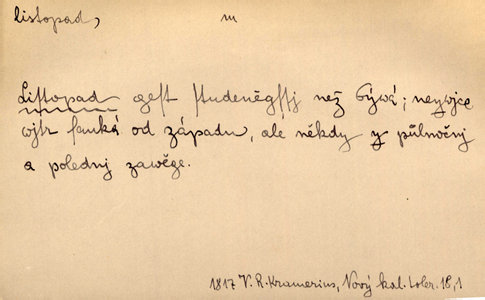 listopad, m
Listopad gest studeněgssj než býwá; neywjce
wjtr fauká od západu, ale někdy y půlnočnj
a polednj zawěge.
1817 V. R. Kramerius, Nový kal. Tolar. 18,1